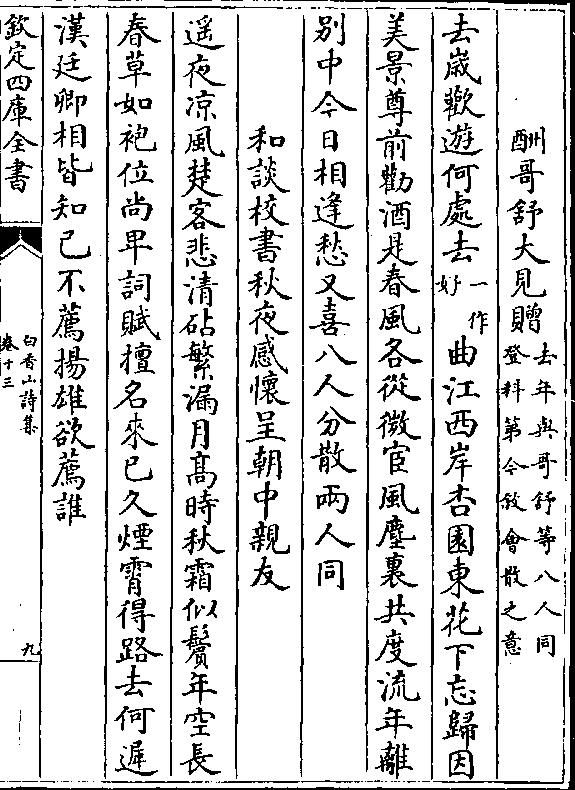 酬哥舒大見贈去年與哥舒等八人同登科第今敘會散之意
去歲歡遊何處去一作好曲江西岸杏園東花下忘歸因
美景尊前勸酒是春風各從微宦風塵裏共度流年離
別中今日相逢愁又喜八人分散兩人同
和談校書秋夜感懷呈朝中親友
遥夜凉風楚客悲清砧繁漏月髙時秋霜似鬢年空長
春草如袍位尚卑詞賦擅名來已久煙霄得路去何遲
漢廷卿相皆知己不薦揚雄欲薦誰
欽定四庫全書
白香山詩集
卷十三
九